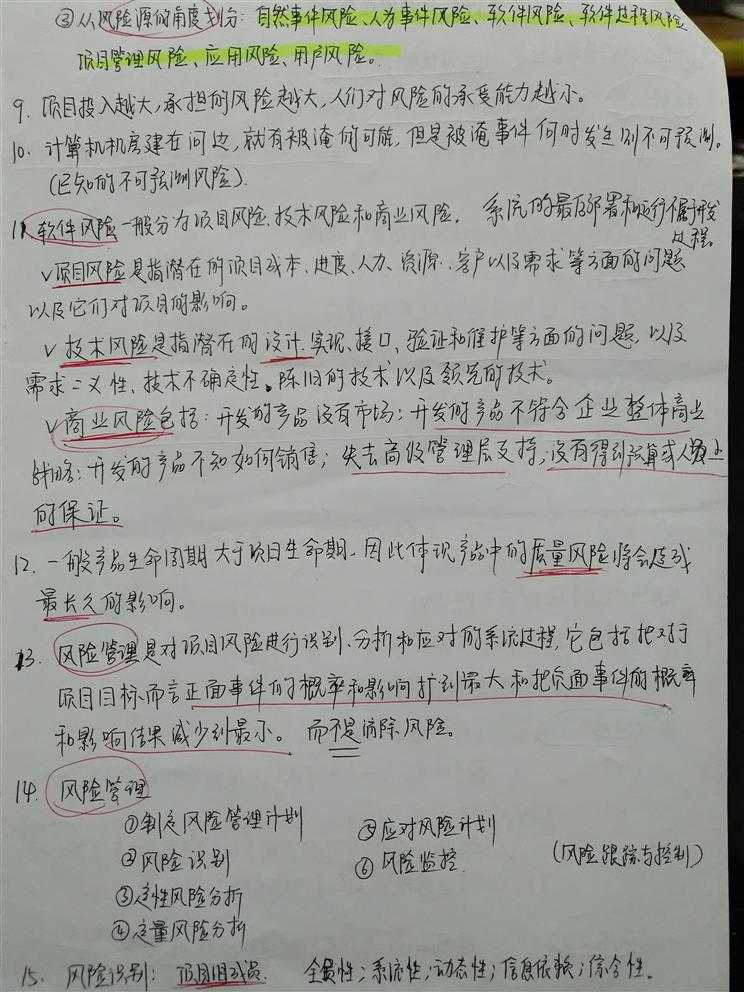 ③从风险源的角度划分：自然事件风险、人为事件风险、软件风险、软件过程风险
项目管理风险、应用风险、用户风险。
9. 项目投入越大，承担的风险越大，人们对风险的承受能力越小。
10. 计算机机房建在河边，就有被淹的可能，但是被淹事件何时发生则不可预测。
（已知的不可预测风险）.
11. 软件风险一般分为项目风险、技术风险和商业风险。 系统的最后部署和运行不属于开发
过程。
√项目风险是指潜在的项目成本、进度、人力、资源、客户以及需求等方面的问题
以及它们对项目的影响。
√技术风险是指潜在的设计、实现、接口、验证和维护等方面的问题，以及
需求二义性、技术不确定性、陈旧的技术以及领先的技术。
√商业风险包括：开发的产品没有市场；开发的产品不符合企业整体商业
战略；开发的产品不知如何销售；失去高级管理层支持；没有得到预算或人员上
的保证。
12. 一般产品生命周期大于项目生命期，因此体现产品中的质量风险将会造成
最长久的影响。
13. 风险管理是对项目风险进行识别、分析和应对的系统过程，它包括把对于
项目目标而言正面事件的概率和影响扩到最大和把负面事件的概率
和影响结果减少到最小。 而不是消除风险。
14. 风险管理
①制定风险管理计划 ⑤应对风险计划
②风险识别 ⑥风险监控 （风险跟踪与控制）
③定性风险分析
④定量风险分析
15. 风险识别：项目组成员 全员性；系统性；动态性；信息依赖；综合性。